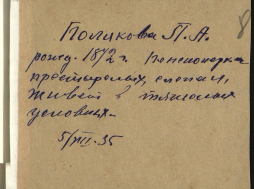 8
Полякова П. А.
рожд. 1872 г. Пенсионерка
престарелых, слепая,
живет в тяжелых
условиях.
5/VIII-35